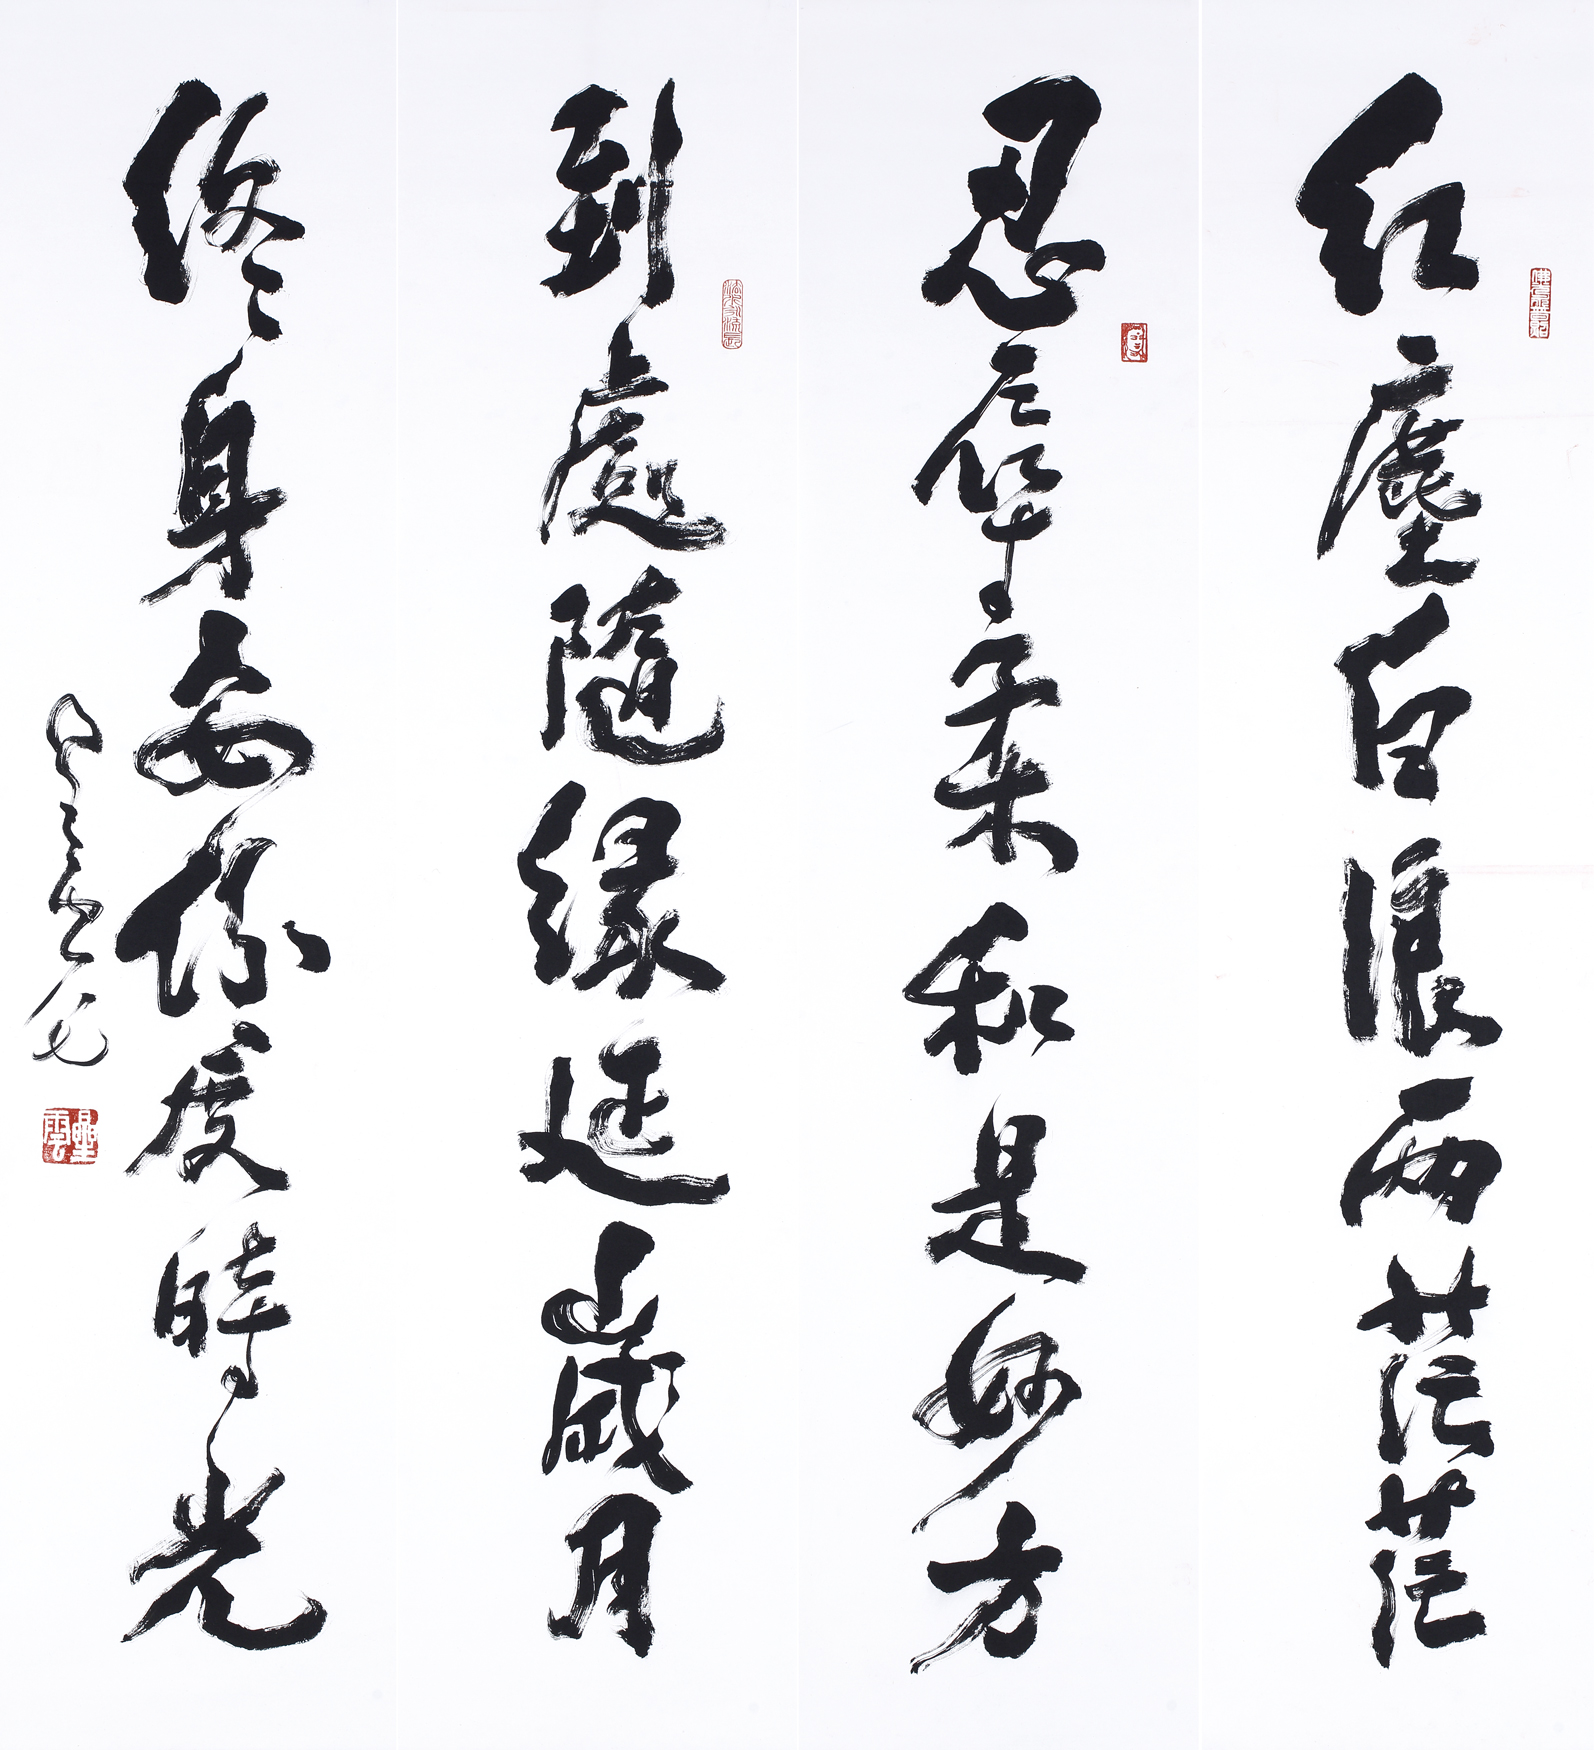 紅塵白浪兩茫茫
忍辱柔和是妙方
到處隨緣延歲月
終身安份度時光
星雲
星雲